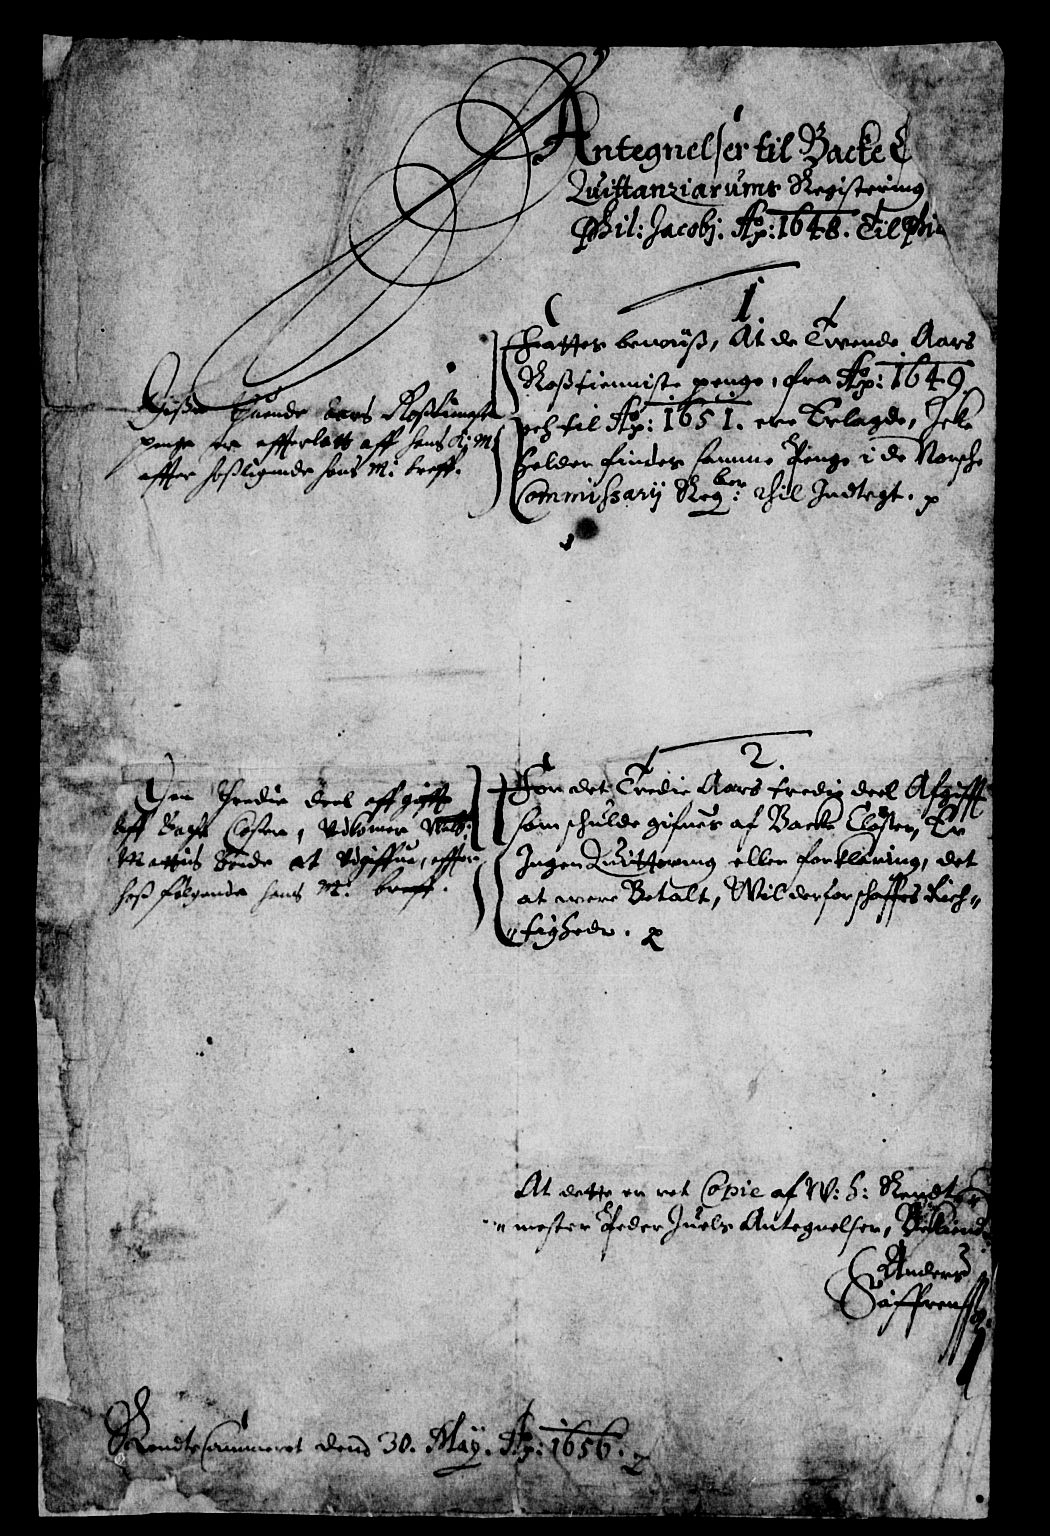 Antegnelser til Backe C
Quittanziarums Registering
Phil: Jacobj. Aō: 1648. Til Phi
1.
Fattes beviiß, At de Tvende Aars
Roßtienniste penge, fra Aō: 1649.
och til Aō: 1651. ere Erlagde, Icke
helder findes samme Penge i de Norsche
Commissarij Regber: thil Indtegt.
Disse Thuende Aars Roßtingste
penge er efterlatt aff hans K: M:
effter hoßligende hans M: breff.
2.
For det Tredie Aars tredie deel Afgifft
som schulde gifues af Backe Closter, Er
Ingen Quittering eller forklaring, det
at were Betalt, Wil derfor schaffes Rich-
-tighede.
Den Thredie deel aff gifft
aff Backe Closter,
at udgiffue, effter
hoß følgende hans M: breff.
At dette er ret Copie af W: H: Rendte
mester Peder Juels Antegnelser, Bekiend
Anders
Søffrens
Rendte Cammeret dend 30. Maij. Aō: 1656.